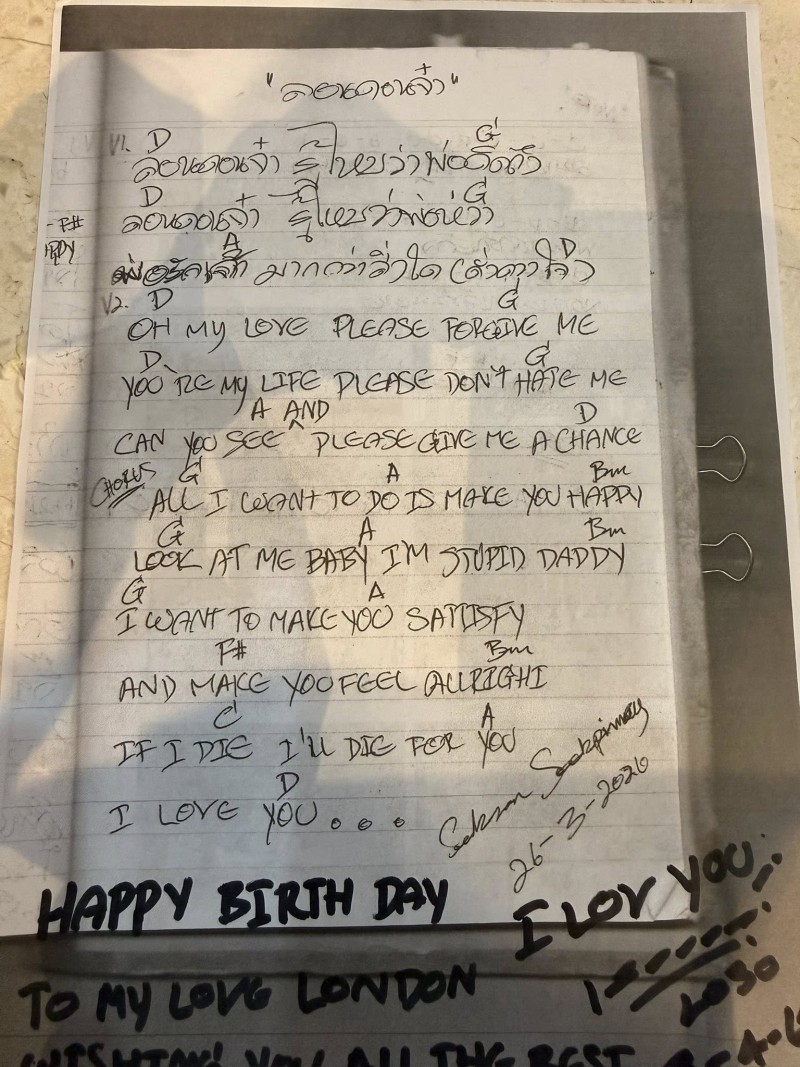 "ลอนดอนจ๋า"
V1. D G
ลอนดอนจ๋า รู้ไหมว่าพ่อคิดถึง
D G
ลอนดอนจ๋า รู้ไหมว่าพ่อห่วง
- F#
A D
มากกว่าสิ่งใด (ดั่งดวงใจ)
V2. D G
OH MY LOVE PLEASE FORGIVE ME
D G
YOU'RE MY LIFE PLEASE DON'T HATE ME
A AND D
CAN YOU SEE ^ PLEASE GIVE ME A CHANCE
CHORUS G A Bm
ALL I WANT TO DO IS MAKE YOU HAPPY
G A Bm
LOOK AT ME BABY I'M STUPID DADDY
G A
I WANT TO MAKE YOU SATISFY
F# Bm
AND MAKE YOU FEEL ALLRIGHT
C A
IF I DIE I'LL DIE FOR YOU
D
I LOVE YOU...
Seksan Sookpimay
26-3-2020
HAPPY BIRTH DAY
I LOV YOU
TO MY LOVE LONDON
LOSO
WISHING YOU ALL THE BEST